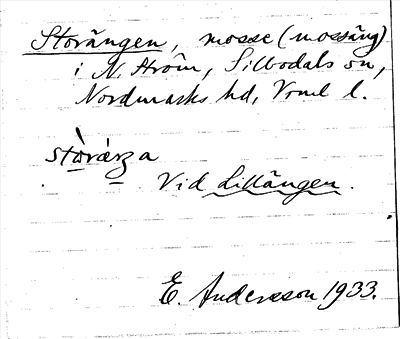 Storängen, mosse (mossäng)
i N. Ström, Sillbodals sn,
Nordmarks hd, Vrml l.
Vid Lillängen.
E. Andersson 1933.